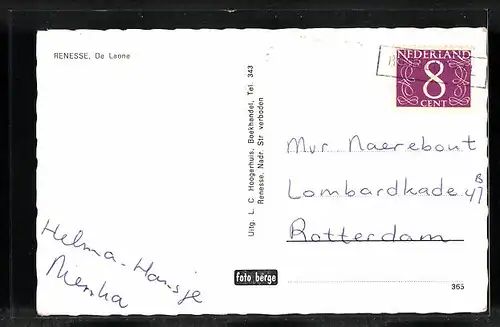 RENESSE, De Leone
NEDERLAND
8
CENT
Uitg. L. C. Hoogerhuis, Boekhandel, Tel. 343
Renesse. Nadr. Str verboden
Mvr. Naerebout
Lombardkade 47 B
Rotterdam
Helma-Hansje
foto berge
365